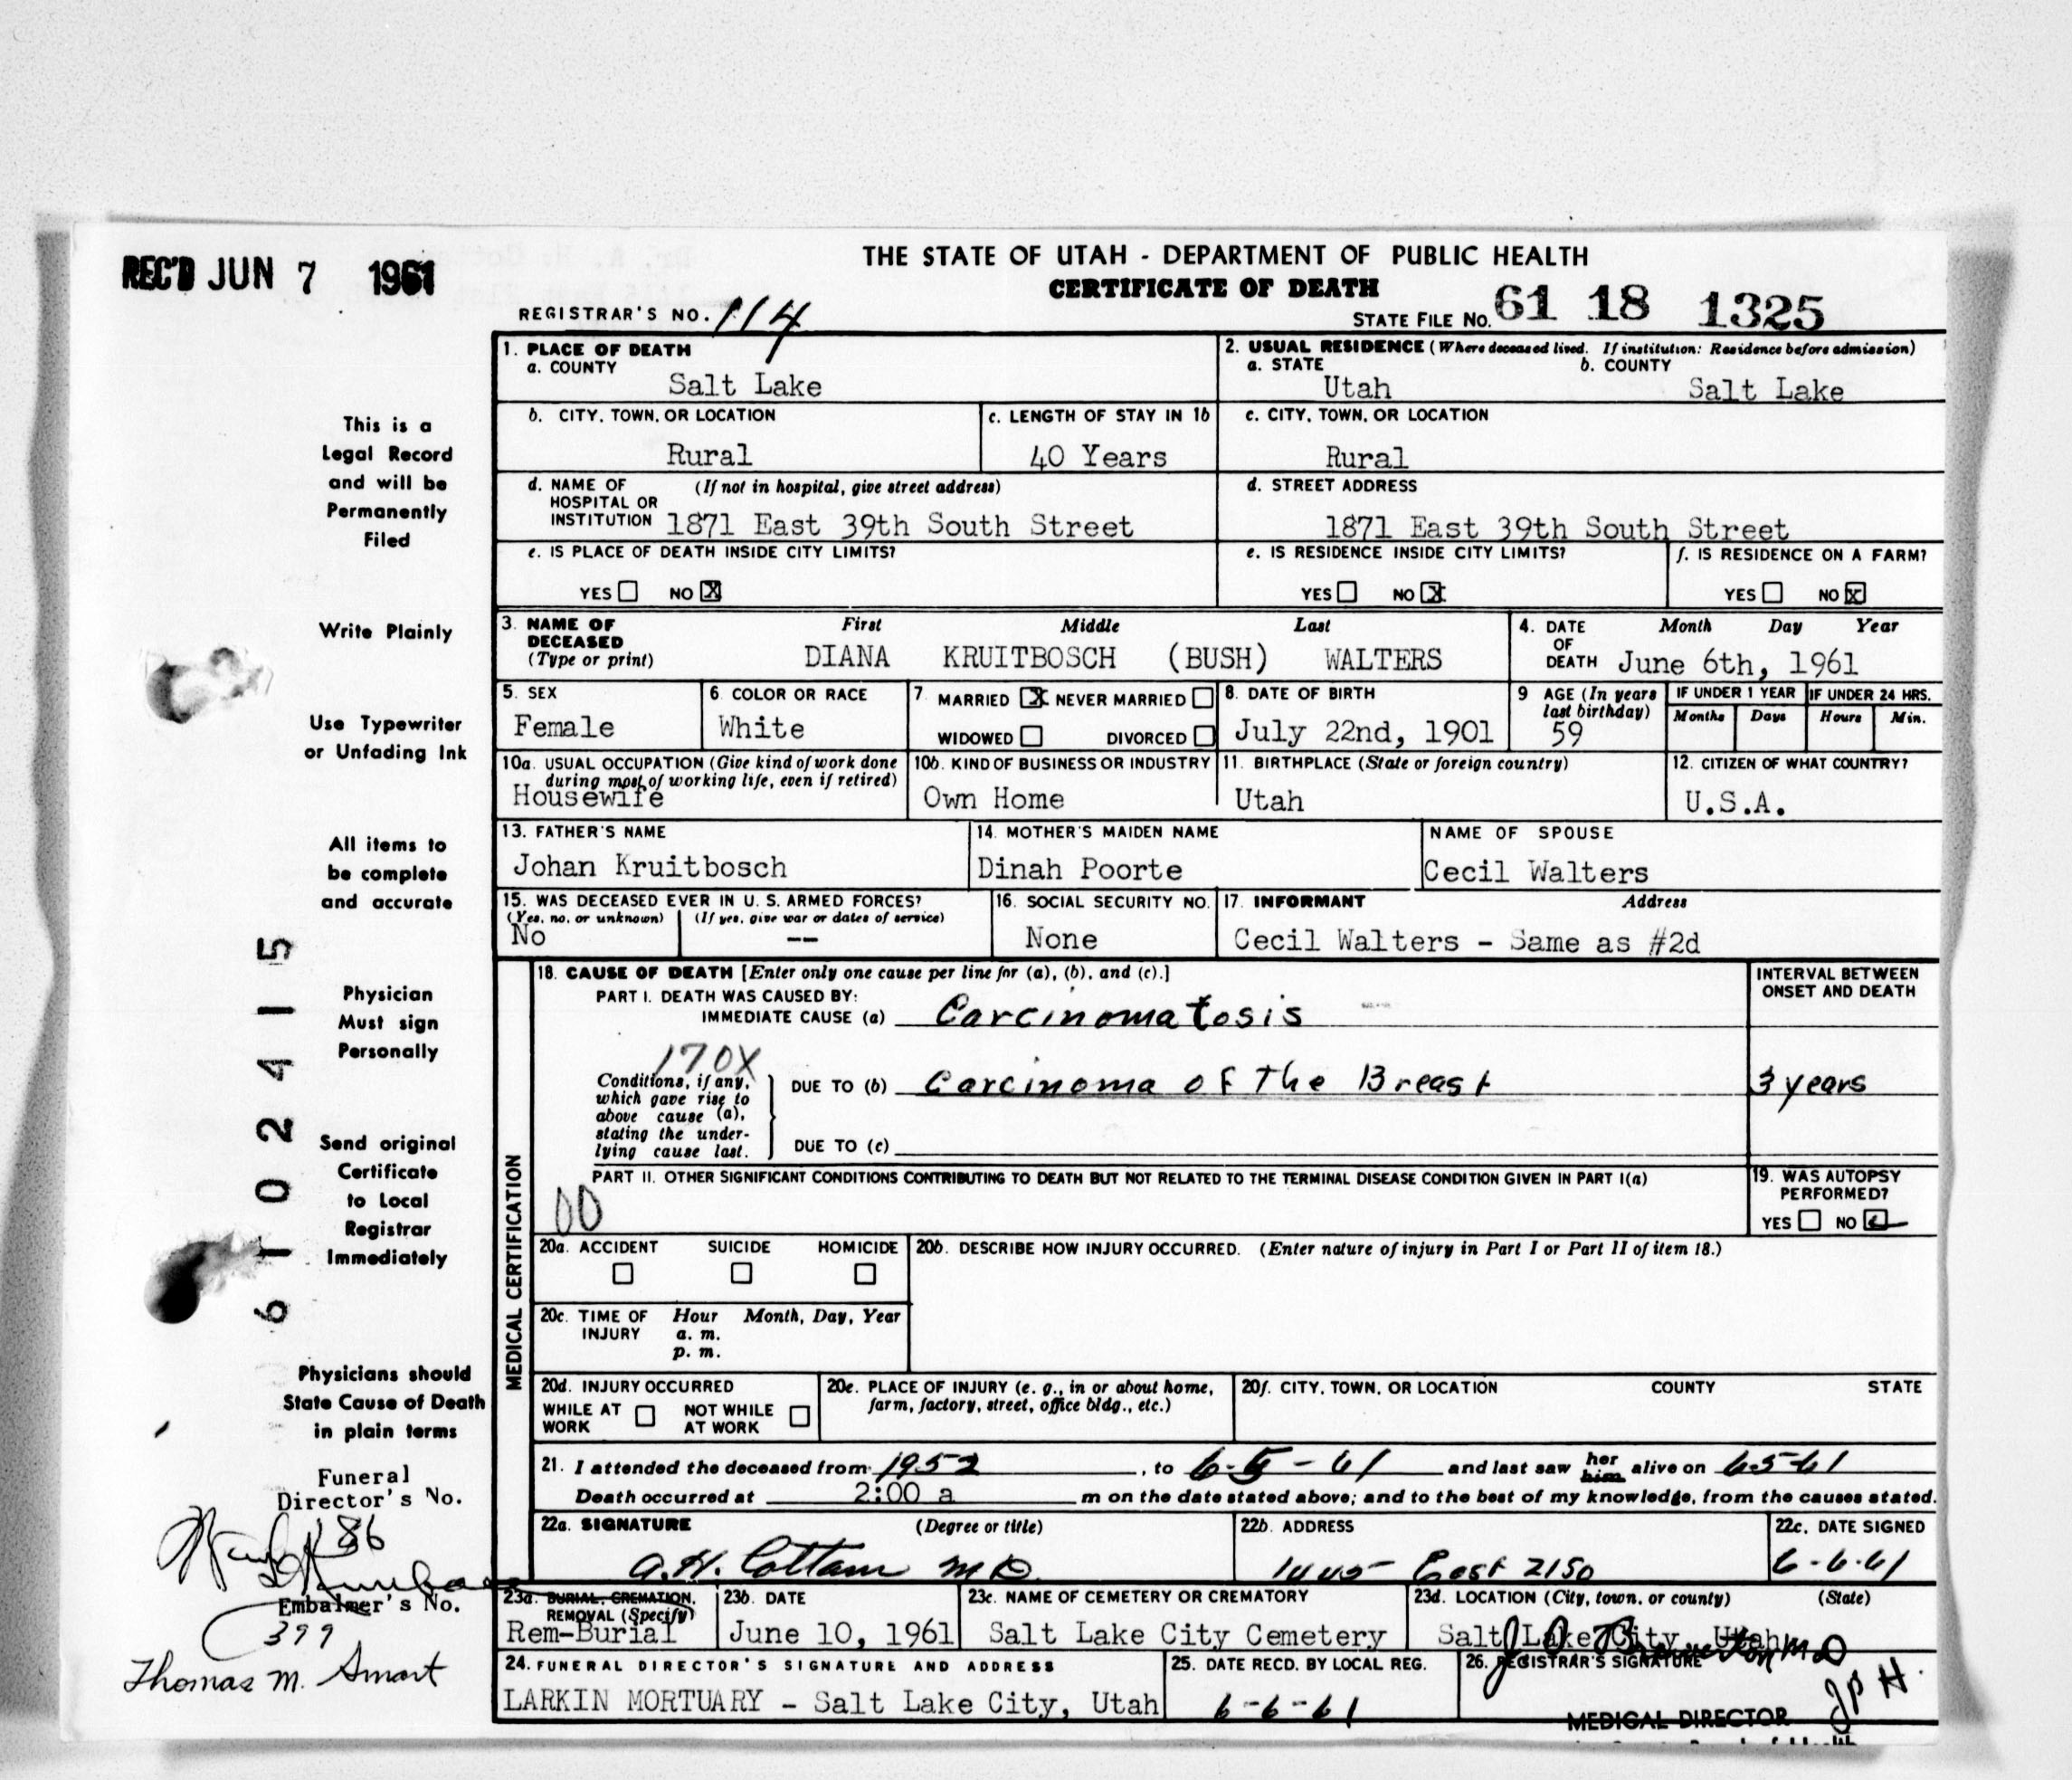 REC'D JUN 7 1961
THE STATE OF UTAH - DEPARTMENT OF PUBLIC HEALTH
CERTIFICATE OF DEATH
REGISTRAR'S NO. 114
STATE FILE NO. 61 18 1325
1. PLACE OF DEATH
a. COUNTY
Salt Lake
2. USUAL RESIDENCE (Where deceased lived. If institution: Residence before admission)
a. STATE b. COUNTY
Utah Salt Lake
b. CITY, TOWN, OR LOCATION
Rural
c. LENGTH OF STAY IN 1b
40 Years
c. CITY, TOWN, OR LOCATION
Rural
d. NAME OF (If not in hospital, give street address)
HOSPITAL OR
INSTITUTION 1871 East 39th South Street
d. STREET ADDRESS
1871 East 39th South Street
e. IS PLACE OF DEATH INSIDE CITY LIMITS?
YES NO X
e. IS RESIDENCE INSIDE CITY LIMITS?
YES NO X
f. IS RESIDENCE ON A FARM?
YES NO X
3. NAME OF First Middle Last
DECEASED
(Type or print) DIANA KRUITBOSCH (BUSH) WALTERS
4. DATE Month Day Year
OF
DEATH June 6th, 1961
5. SEX
Female
6. COLOR OR RACE
White
7. MARRIED X NEVER MARRIED
WIDOWED DIVORCED
8. DATE OF BIRTH
July 22nd, 1901
9 AGE (In years
last birthday)
59
IF UNDER 1 YEAR IF UNDER 24 HRS.
Months Days Hours Min.
10a. USUAL OCCUPATION (Give kind of work done
during most of working life, even if retired)
Housewife
10b. KIND OF BUSINESS OR INDUSTRY
Own Home
11. BIRTHPLACE (State or foreign country)
Utah
12. CITIZEN OF WHAT COUNTRY?
U.S.A.
13. FATHER'S NAME
Johan Kruitbosch
14. MOTHER'S MAIDEN NAME
Dinah Poorte
NAME OF SPOUSE
Cecil Walters
15. WAS DECEASED EVER IN U. S. ARMED FORCES?
(Yes, no, or unknown) (If yes, give war or dates of service)
No --
16. SOCIAL SECURITY NO.
None
17. INFORMANT Address
Cecil Walters - Same as #2d
MEDICAL CERTIFICATION
18. CAUSE OF DEATH [Enter only one cause per line for (a), (b), and (c).]
PART I. DEATH WAS CAUSED BY:
IMMEDIATE CAUSE (a) Carcinomatosis
INTERVAL BETWEEN
ONSET AND DEATH
170X
Conditions, if any,
which gave rise to
above cause (a),
stating the under-
lying cause last.
DUE TO (b) Carcinoma of the Breast
3 years
DUE TO (c)
PART II. OTHER SIGNIFICANT CONDITIONS CONTRIBUTING TO DEATH BUT NOT RELATED TO THE TERMINAL DISEASE CONDITION GIVEN IN PART I(a)
00
19. WAS AUTOPSY
PERFORMED?
YES NO
20a. ACCIDENT SUICIDE HOMICIDE
20b. DESCRIBE HOW INJURY OCCURRED. (Enter nature of injury in Part I or Part II of item 18.)
20c. TIME OF Hour Month, Day, Year
INJURY a. m.
p. m.
20d. INJURY OCCURRED
WHILE AT NOT WHILE
WORK AT WORK
20e. PLACE OF INJURY (e. g., in or about home,
farm, factory, street, office bldg., etc.)
20f. CITY, TOWN, OR LOCATION COUNTY STATE
21. I attended the deceased from 1952, to 6-5-61 and last saw her him alive on 6-5-61
Death occurred at 2:00 a m on the date stated above; and to the best of my knowledge, from the causes stated.
22a. SIGNATURE (Degree or title)
A.H. Cottam MD
22b. ADDRESS
East 2150
22c. DATE SIGNED
6-6-61
23a. BURIAL, CREMATION,
REMOVAL (Specify)
Rem-Burial
23b. DATE
June 10, 1961
23c. NAME OF CEMETERY OR CREMATORY
Salt Lake City Cemetery
23d. LOCATION (City, town, or county) (State)
Salt Lake City, Utah
24. FUNERAL DIRECTOR'S SIGNATURE AND ADDRESS
LARKIN MORTUARY - Salt Lake City, Utah
25. DATE RECD. BY LOCAL REG.
6-6-61
26. REGISTRAR'S SIGNATURE
MD
JPH.
MEDICAL DIRECTOR
This is a
Legal Record
and will be
Permanently
Filed
Write Plainly
Use Typewriter
or Unfading Ink
All items to
be complete
and accurate
Physician
Must sign
Personally
Send original
Certificate
to Local
Registrar
Immediately
Physicians should
State Cause of Death
in plain terms
6102415
Funeral
Director's No.
86
Embalmer's No.
399
Thomas M. Smart